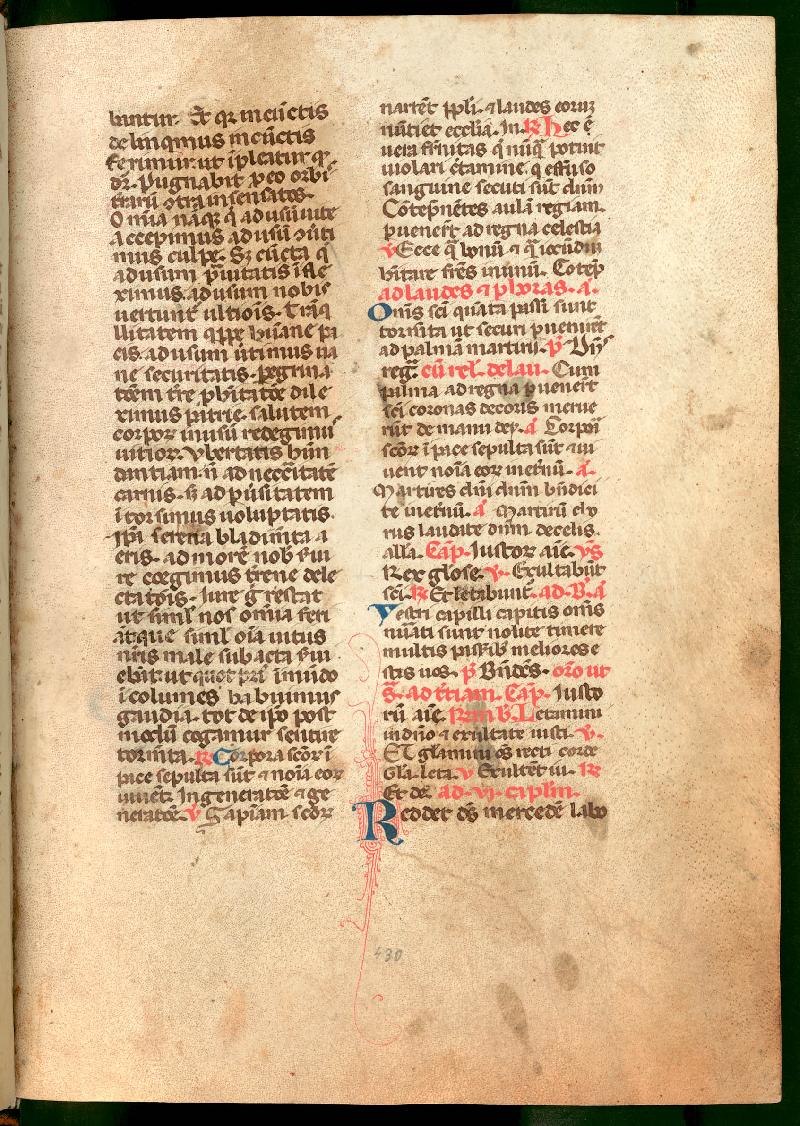 buntur. Et qꝛ in cūctis
delinquimus in cūctis
ferimur. ut īpleatur qͣ
dr̄. Pugnabit ꝓ eo orbi
terraꝝ ↄtra insensatos.
Omīa nāqꝫ q̄ ad usū uite
accepimus ad usū ↄūti
mus culpe. Sꝫ cūcta q̄
ad usum p̄uitatis īfle
ximus. ad usum nobis
uertunt̄ ultiōis. Trāq̇
llitatem q̇ppe hūane pa
cis ad usum ūtimus ina
ne securitatis. pegrina
tōem tr̄e ꝓ hītatōe dile
ximus patrie. salutem
corpoꝝ in usū redegimus
uitioꝝ. Vbertatis habūn
dantiam n̄ ad neccītatē
carnis. sꝫ ad ꝑuˀsitatem
ītorsimus uoluptatis.
ipa serena bladimta a
eris. ad morē nob ẜui
re coegimus tr̄ene dele
ctatōis. Iure ḡ restat
ut siml̄ nos omīa feri
ātque siml̄ oīa uitus
nr̄is male subacta ẜui
ebāt. ut quot pri᷒ ī mūdo
īcolumes habuimus
gaudia. tot de ip̄o post
modū cogamur sentire
tormīta. ℟ Corpora scōꝝ ī
pace sepulta sūt ⁊ noīa eoꝝ
uiuēt ī generatōe ⁊ ge
neratōe. v Sapiam scōꝝ
narrēt ppl̄i. ⁊ laudes eoruꝫ
nūtiet eccl̄ia. In. ℟ Hec ē
uera fr̄nitas q̄ nūq̄ potuit
uiolari c̄tamine. q̇ effuso
sanguine secuti sūt dn̄m
Cōtēpnētes aulā regiam.
ꝑueneř ad regna celestia
v Ecce q̄ bonū ⁊ q̄ iocūdum
hītare fr̄es in unū. Cōtēp
ad laudes ⁊ ꝑ horas. a.
Omīs sc̄i quāta passi sunt
tormīta ut securi ꝑuenirēt
ad palmā martirij. p̄ Dn̄s
reg̃. cū rel. de lau. Cum
palma ad regna ꝑueneř
sc̄i coronas decoris merue
rūt de manu dei. a Corpora
scōꝝ ī pace sepulta sūt ⁊ ui
uent noīa eoꝝ in et̄nū. a.
Martires dn̄i dn̄m bn̄dici
te in et̄nū. a Martirū cho
rus laudate dn̄m de celis.
alla. Cap̄. Iustoꝝ aīe. ys
Rex gl̄ose. v. Exultabūt
sc̄i. ℟ Et letabunt̄. ad. B. a
Vestri capilli capitis omīs
nūati sunt nolite timere
multis passerib meliores e
stis uos. p̄ Bn̄dc̄s. or̄o ut
s̄. ad t̄tiam. Cap̄. Iusto
rū aīe. Rm̄ b. Letamini
in dn̄o ⁊ exultate iusti. v.
Et gl̄amini oēs recti corde
Gl̄a. leta. v Exultēt iu. ℟
Et de. ad. vi. capl̄m.
Reddet ds̄ mercedē labo
430